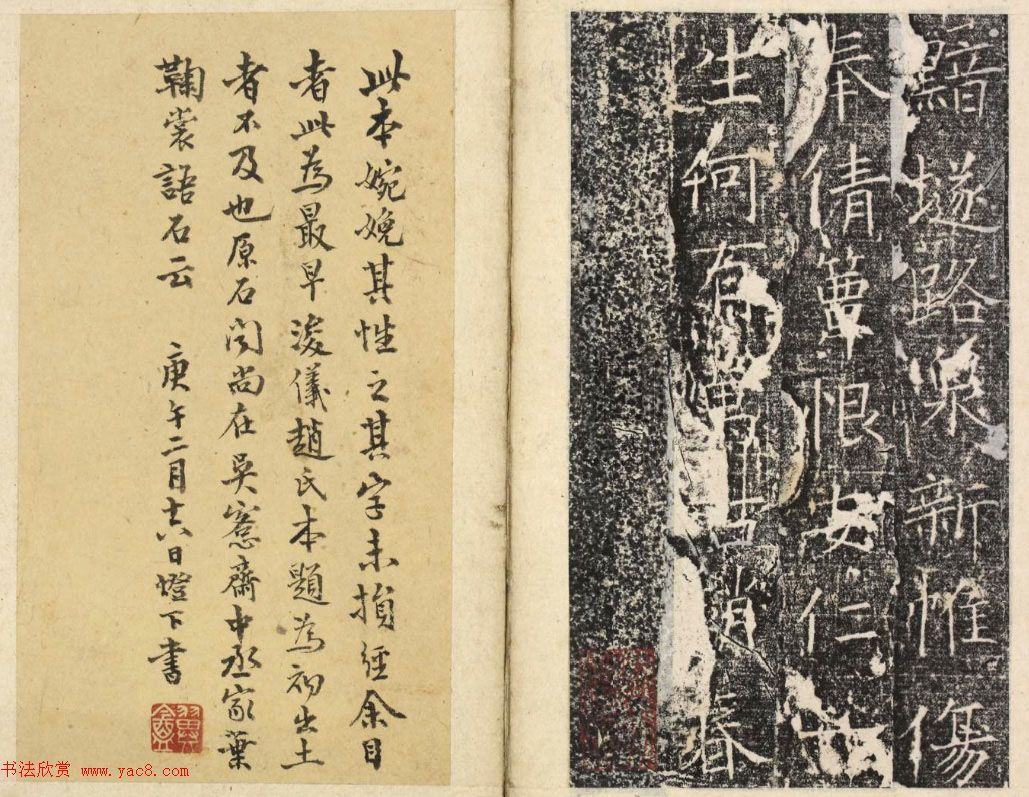 黯路新惟傷
奉倩簟恨安仁一
生何有古春
此本婉娩其性之其字未損經余目
者此為最早浚儀趙氏本題為初出土
者不及也原石聞尚在吳愙齋中丞家葉
鞠裳語石云 庚午二月十六日燈下書
翼盦
书法欣赏 www.yac8.com